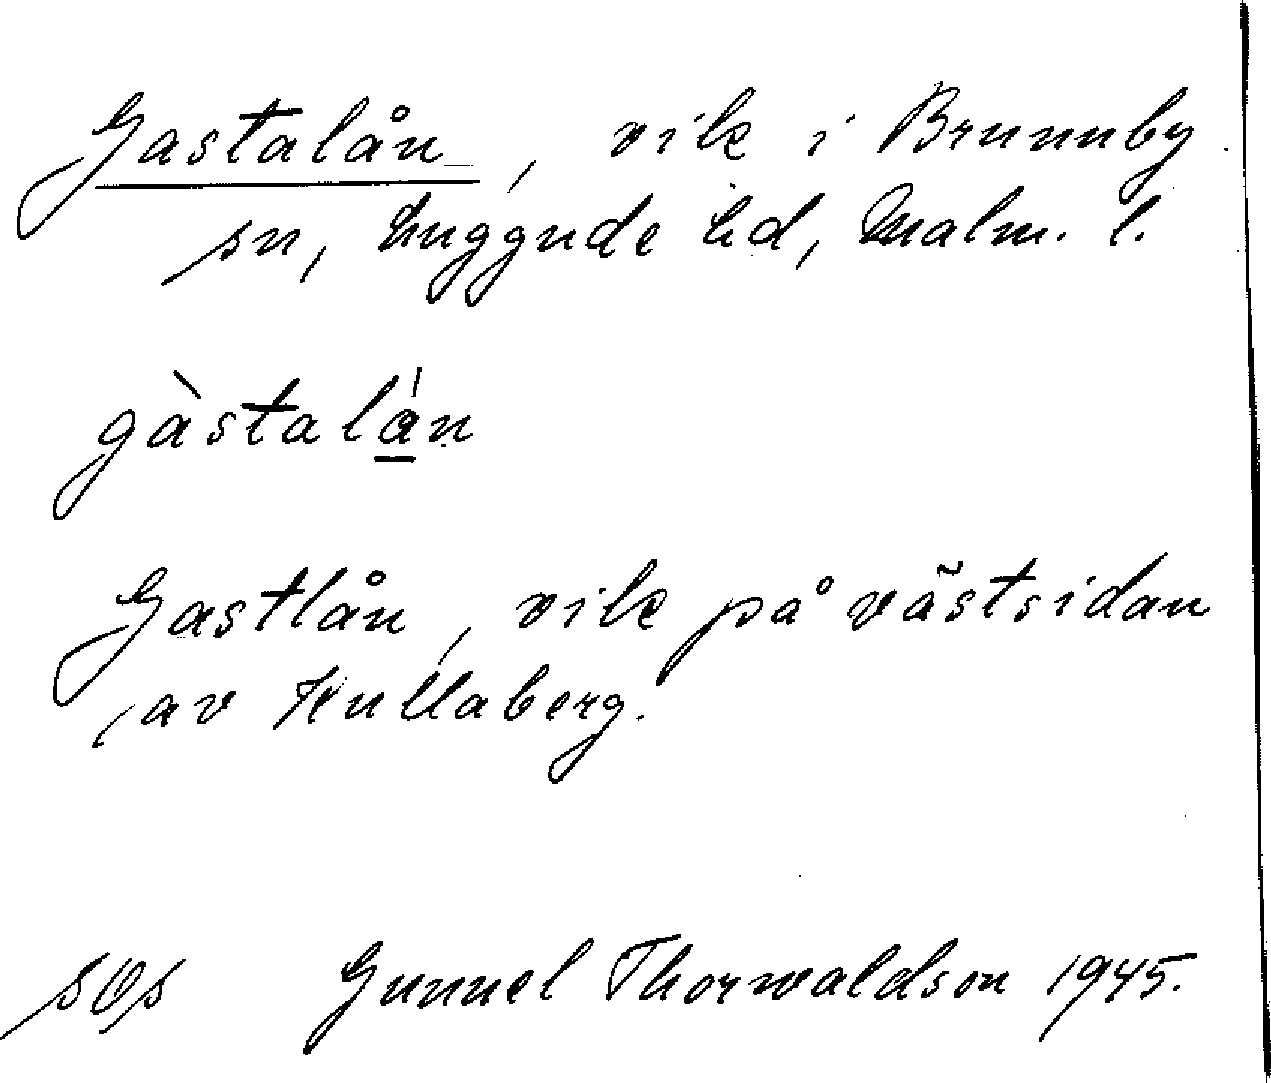 Gastalån, vik i Brunnby
sn, Luggude hd, Malm. l.
gàstalán
Gastlån, vik på västsidan
av Kullaberg.
Gunnel Thorwaldson 1945.